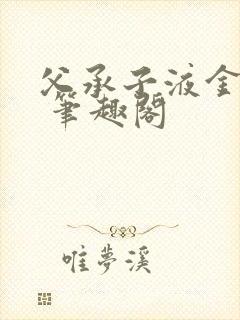 父承子液金
笔趣阁
唯夢溪